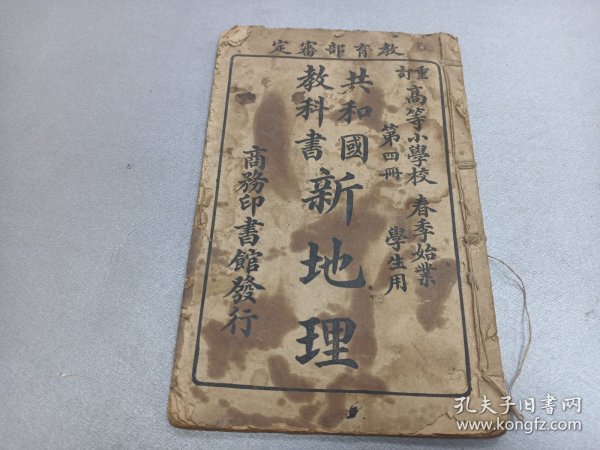 教育部審定
重訂
高等小學校 春季始業
第四冊 學生用
共和國
教科書
新地理
商務印書館發行
孔夫子旧书网
www.kongfz.com